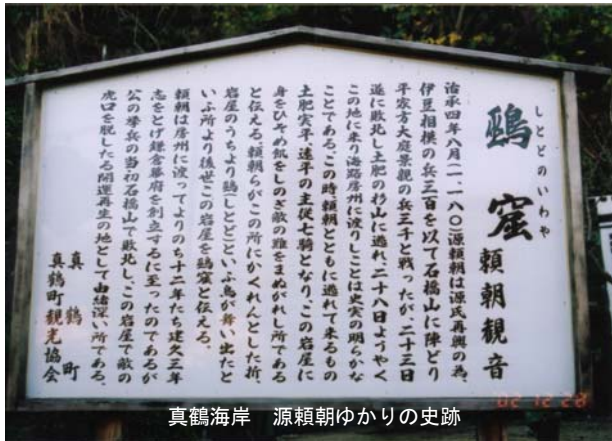 しとどのいわや
鵐窟
頼朝観音
治承四年八月(一、一八〇)源頼朝は源氏再興の為、
伊豆相模の兵三百を以て石橋山に陣どり
平家方大庭景親の兵三千と戦ったが、二十三日
遂に敗北し土肥の杉山に逃れ、二十八日ようやく
この地に来り海路房州に渡りしことは史実の明らかな
ことである。この時頼朝とともに逃れて来るもの
土肥実平、遠平の主従七騎となり、この岩屋に
身をひそめ飢をしのぎ敵の難をまぬがれし所である
と伝える。頼朝らがこの所にかくれんとした折、
岩屋のうちより鵐(しとど)といふ鳥が舞い出たと
いふ所より後世この岩屋を鵐窟と伝える。
頼朝は房州に渡ってよりのち十二年たち建久三年
志をとげ鎌倉幕府を創立するに至ったのであるが
公の挙兵の当初石橋山で敗北し、この岩屋で敵の
虎口を脱したる開運再生の地として由緒深い所である。
真鶴町
真鶴町観光協会
02 12 28
真鶴海岸 源頼朝ゆかりの史跡